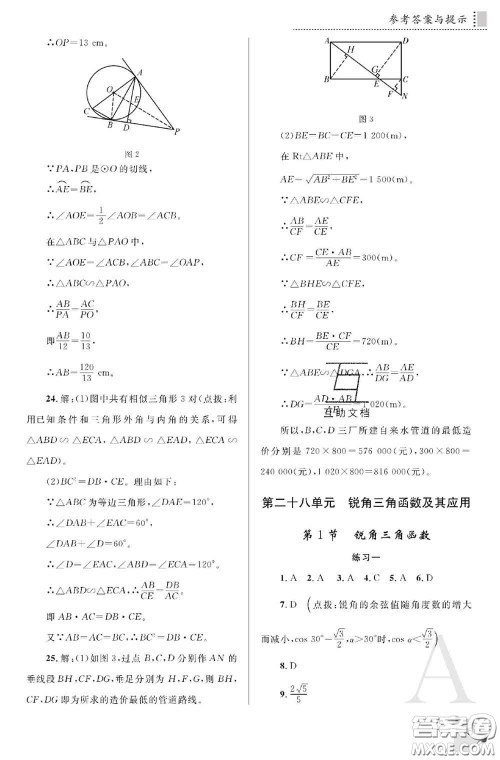 参考答案与提示
∴OP=13 cm.
A
O
E
C
B
D
P
图2
∵PA,PB是⊙O的切线,
∴AE=BE,
∴∠AOE=1/2∠AOB=∠ACB.
在△ABC与△PAO中,
∵∠AOE=∠ACB,∠ABC=∠OAP,
∴△ABC∽△PAO,
∴AB/PA=AC/PO,
即AB/12=10/13,
∴AB=120/13 cm.
24.解:(1)图中共有相似三角形3对(点拨:利
用已知条件和三角形外角与内角的关系,可得
△ABD∽△ECA,△ABD∽△EAD,△ECA∽
△EAD).
(2)BC²=DB·CE.理由如下:
∵△ABC为等边三角形,∠DAE=120°,
∴∠DAB+∠CAE=60°.
∵∠DAB+∠D=60°,
∴∠CAE=∠D.
∵∠DBA=∠ACE=120°,
∴△ABD∽△ECA,∴AB/CE=DB/AC.
即AB·AC=DB·CE.
又∵AB=AC=BC,∴BC²=DB·CE.
25.解:(1)如图3,过点B,C,D分别作AN的
垂线段BH,CF,DG,垂足分别为H,F,G,则BH,
CF,DG即为所求的造价最低的管道路线.
A
D
H
G
E
B
C
F
N
图3
(2)BE=BC-CE=1 200(m).
在Rt△ABE中,
AE=√(AB²+BE²)=1 500(m).
∵△ABE∽△CFE,
∴AB/CF=AE/CE.
∴CF=CE·AB/AE=300(m).
∵△BHE∽△CFE,
∴BH/CF=BE/CE.
∴BH=BE·CF/CE=720(m).
∵△ABE∽△DGA,∴AB/DG=AE/AD.
∴DG=AB·AD/AE=1 020(m).
互助文档
所以,B,C,D三厂所建自来水管道的最低造
价分别是720×800=576 000(元),300×800=
240 000(元),1 020×800=816 000(元).
第二十八单元 锐角三角函数及其应用
第1节 锐角三角函数
练习一
1.A 2.A 3.A 4.C 5.A 6.D
7.D (点拨:锐角的余弦值随角度数的增大
而减小,cos 30°=√3/2,α>30°时,cos α<√3/2)
8.D
9.2√5/5
A
答案圈
MXQE.COM